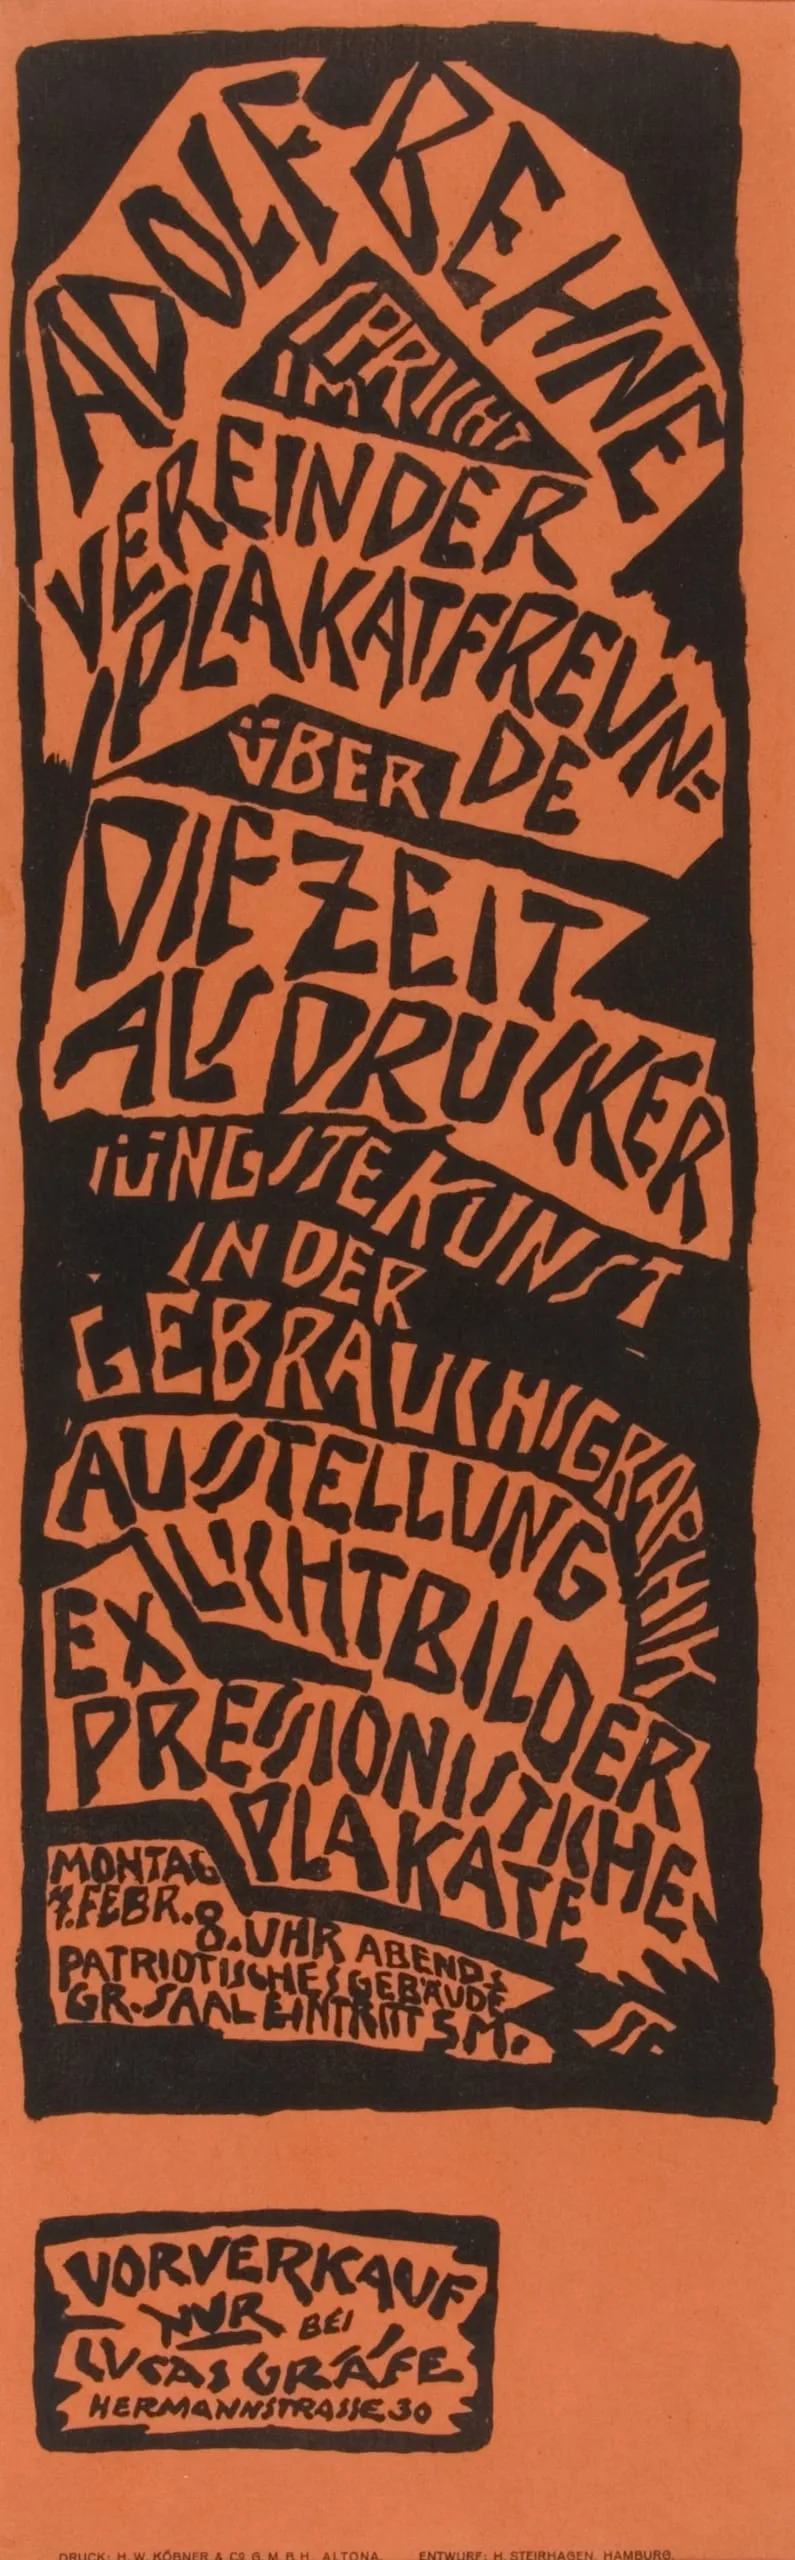 ADOLF BEHNE
SPRICHT
IM
VEREIN DER
PLAKATFREUN=
DE
ÜBER
DIE ZEIT
ALS DRUCKER
IÜNGSTE KUNST
IN DER
GEBRAUCHSGRAPHIK
AUSSTELLUNG
LICHTBILDER
EX
PRESSIONISTISCHE
PLAKATE
MONTAG
7. FEBR. 8. UHR ABENDS
PATRIOTISCHES GEBÄUDE
GR. SAAL EINTRITT 5 M.
St.
VORVERKAUF
NUR BEI
LUCAS GRÄFE
HERMANNSTRASSE 30
DRUCK: H. W. KÖBNER & CO. G. M. B. H. ALTONA. ENTWURF: H. STEIRHAGEN, HAMBURG.